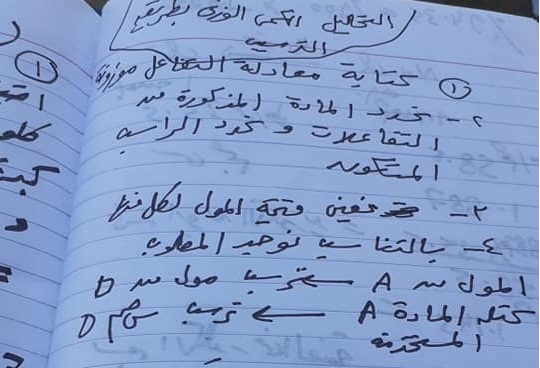 التحليل الكمى الوزنى بطريقة
الترسيب
١ كتابة معادلة التفاعل موزونة
٢- نحدد المادة المذكورة من
التفاعلات ونحدد الراسب
المتكون
٣- نعين قيمة المول لكل منها
٤- بالتناسب نوجد المطلوب
المول من A ← يترسب مول من D
كتلة المادة A ← ترسب جم D
المستخدمة
١